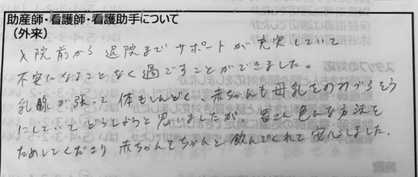 助産師・看護師・看護助手について
（外来）
入院前から退院までサポートが充実していて
不安になることなく過ごすことができました。
乳腺が張って体もしんどく、赤ちゃんも母乳をのみづらそう
にしていてどうしようと思いましたが、皆さん色んな方法を
ためしてくださり赤ちゃんもちゃんと飲んでくれて安心しました。